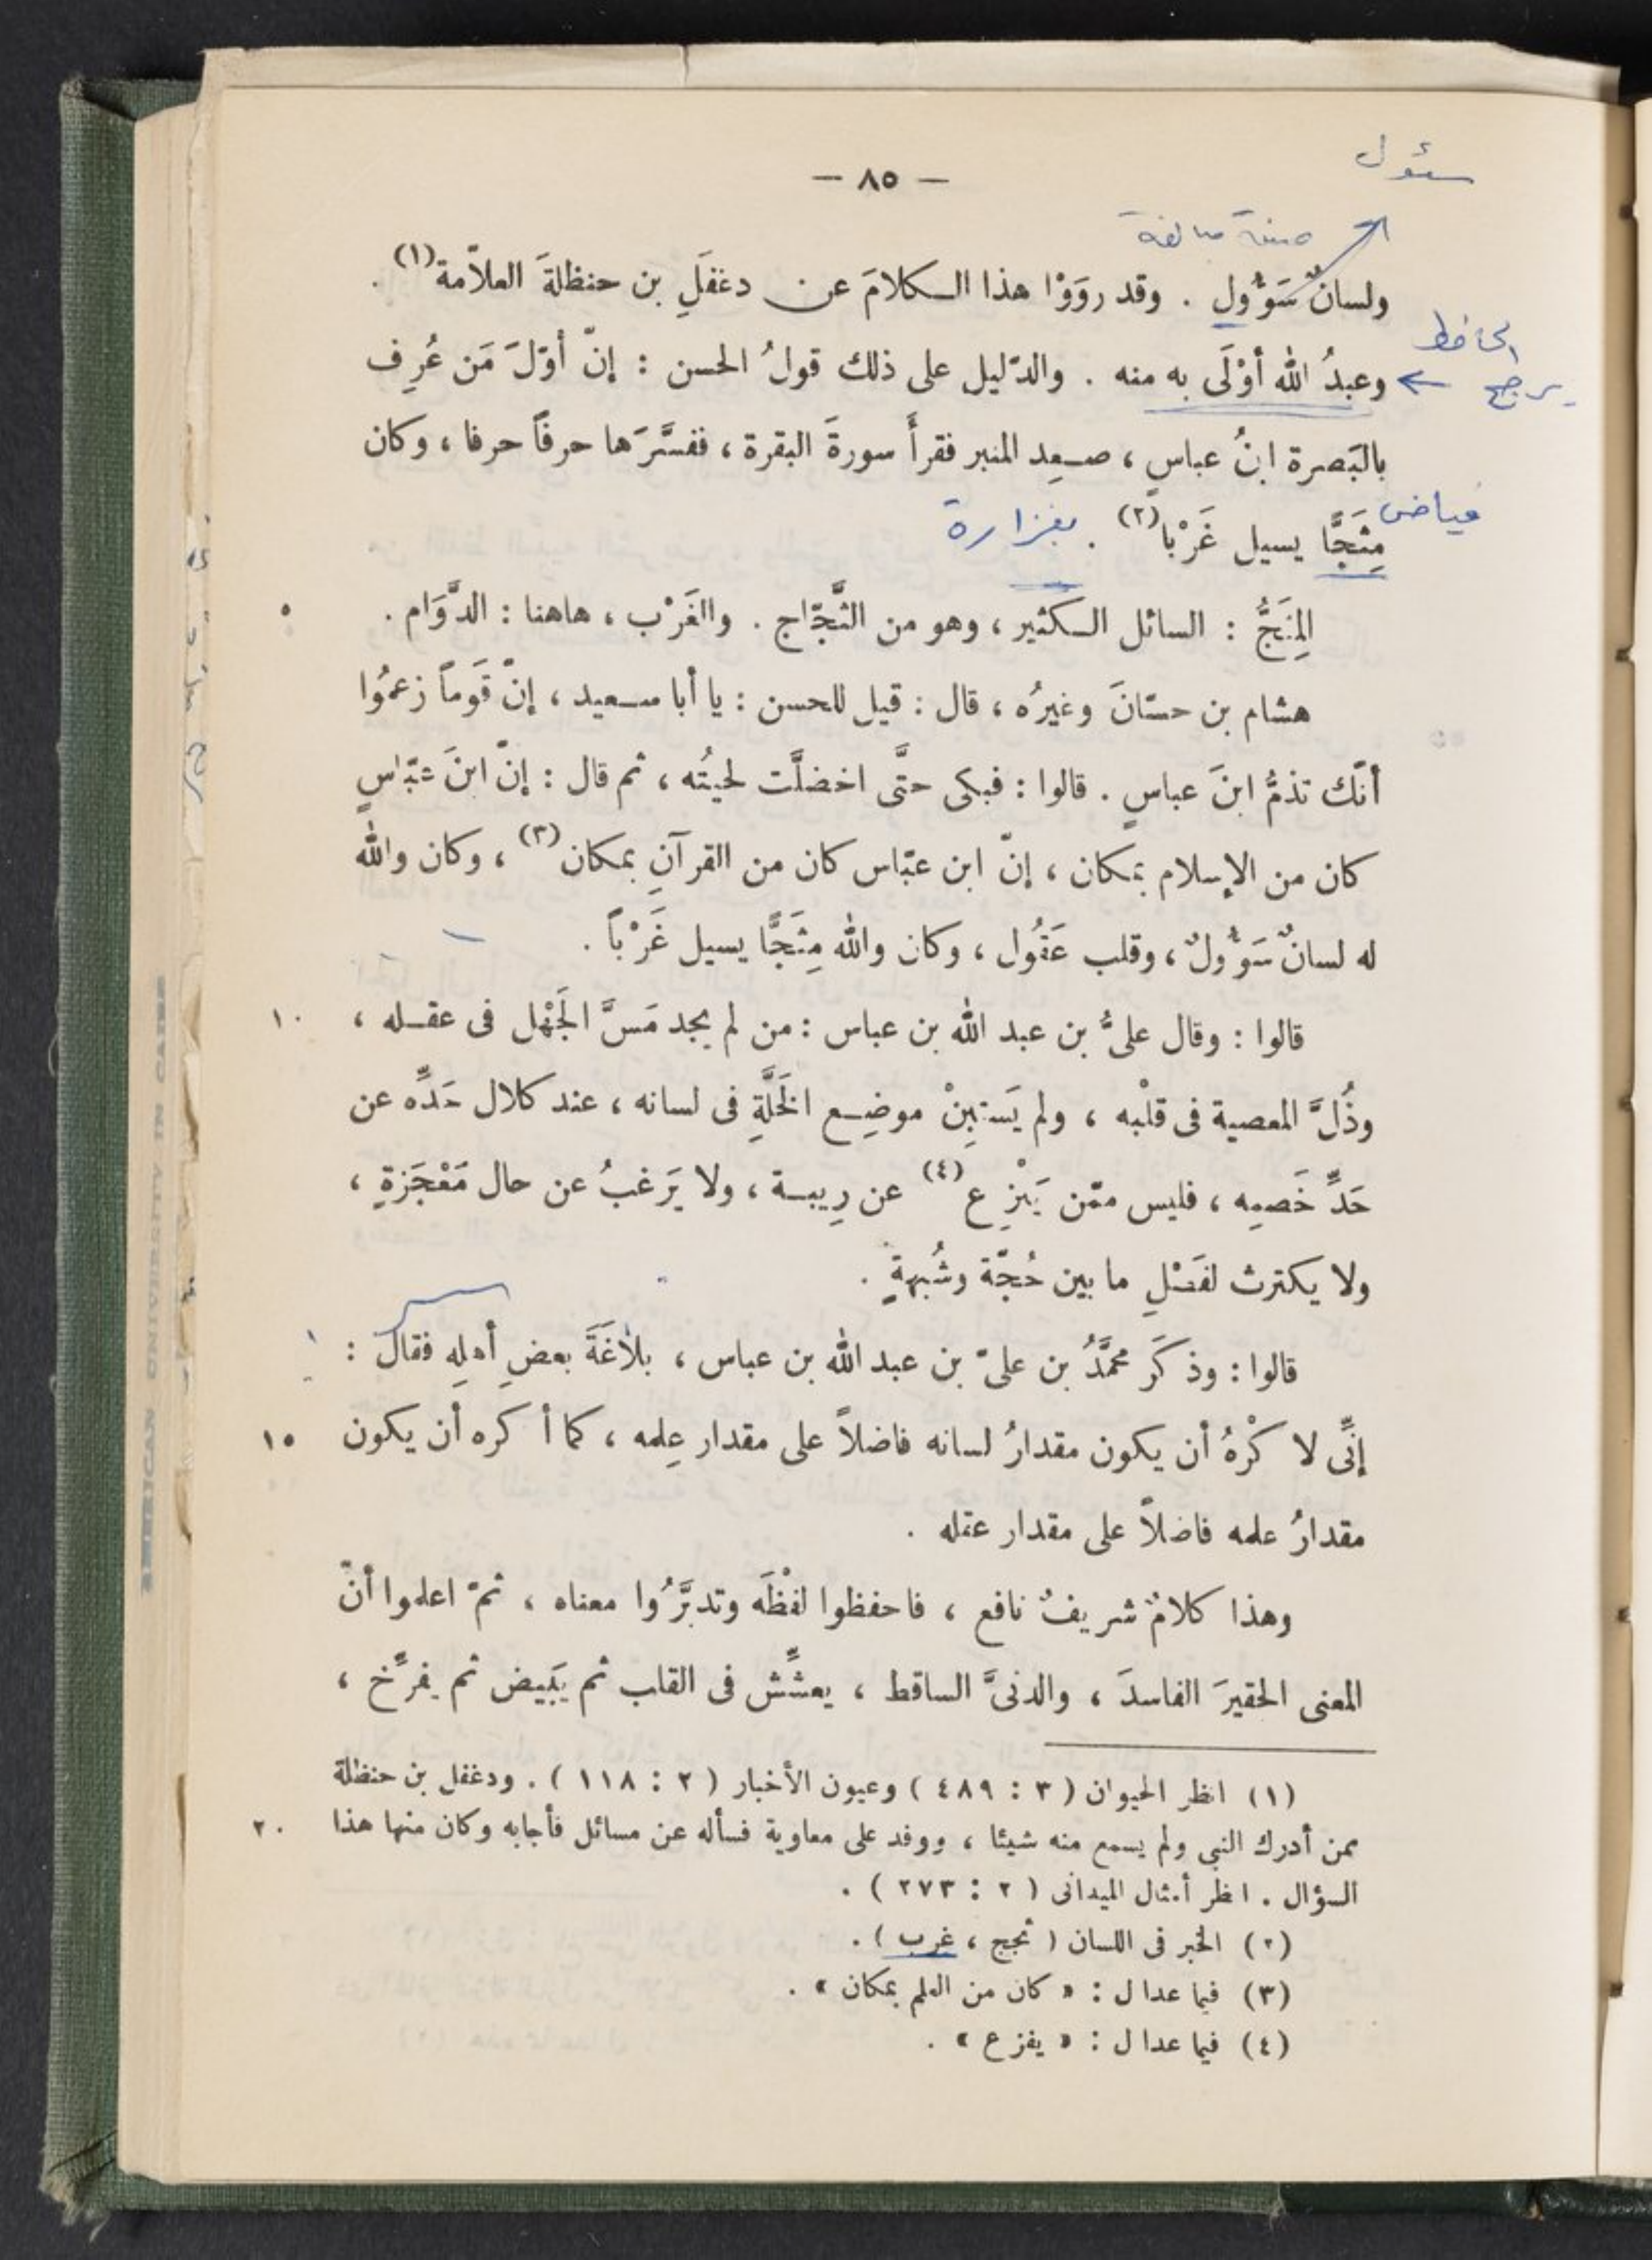 سئول
— ٨٥ —
صيغة مبالغة
ولسانٌ سَؤُولٍ . وقد روَوْا هذا الكلامَ عن دغفَلِ بن حنظلةَ العلاّمة (١) .
الجاحظ
يرجح ←
وعبدُ الله أوْلَى به منه . والدّليل على ذلك قولُ الحسن : إنّ أوّلَ مَن عُرِف
بالبَصرة ابنُ عباسٍ ، صعِد المنبر فقرأَ سورةَ البقرة ، ففسَّرَها حرفاً حرفا ، وكان
فياض
مِثَجًّا يسيل غَرْبا (٢) . بغزارة
المِثَجُّ : السائل الكثير ، وهو من الثَّجّاج . والغَرْب ، هاهنا : الدَّوَام . ٥
هشام بن حسّانَ وغيرُه ، قال : قيل للحسن : يا أبا سعيد ، إنّ قَوماً زعمُوا
أنّك تذمُّ ابنَ عباسٍ . قالوا : فبكى حتَّى اخضلَّت لحيتُه ، ثم قال : إنّ ابنَ عبّاسٍ
كان من الإسلام بمكان ، إنّ ابن عبّاس كان من القرآنِ بمكان (٣) ، وكان والله
له لسانٌ سَؤُولٌ ، وقلب عَقُول ، وكان والله مِثَجًّا يسيل غَرْباً .
قالوا : وقال علىُّ بن عبد الله بن عباس : من لم يجد مَسَّ الجَهْل فى عقله ، ١٠
وذُلَّ المعصية فى قلْبه ، ولم يَستبِنْ موضِع الخَلَّةِ فى لسانه ، عند كلال حَدِّه عن
حَدِّ خَصمِه ، فليس ممّن يَنْزِع (٤) عن رِيبة ، ولا يَرغبُ عن حال مَعْجَزةٍ ،
ولا يكترث لفَصْلِ ما بين حُجّة وشُبهةٍ .
قالوا : وذكَر محمَّدُ بن علىّ بن عبد الله بن عباس ، بلاغَةَ بعضِ أهلِه فقال :
إنِّى لا كْرهُ أن يكون مقدارُ لسانه فاضلاً على مقدار عِلمه ، كما أكره أن يكون ١٥
مقدارُ علمه فاضلاً على مقدار عقله .
وهذا كلامٌ شريفٌ نافع ، فاحفظوا لفْظَه وتدبَّرُوا معناه ، ثمّ اعلموا أنّ
المعنى الحقيرَ الفاسدَ ، والدنىَّ الساقط ، يعشِّش فى القلب ثم يَبِيض ثم يفرِّخ ،
(١) انظر الحيوان ( ٣ : ٤٨٩ ) وعيون الأخبار ( ٢ : ١١٨ ) . ودغفل بن حنظلة
ممن أدرك النبى ولم يسمع منه شيئا ، ووفد على معاوية فسأله عن مسائل فأجابه وكان منها هذا ٢٠
السؤال . انظر أمثال الميدانى ( ٢ : ٢٧٣ ) .
(٢) الخبر فى اللسان ( ثجج ، غرب ) .
(٣) فيما عدا ل : « كان من العلم بمكان » .
(٤) فيما عدا ل : « يفزع » .
AMERICAN UNIVERSITY IN CAIRO